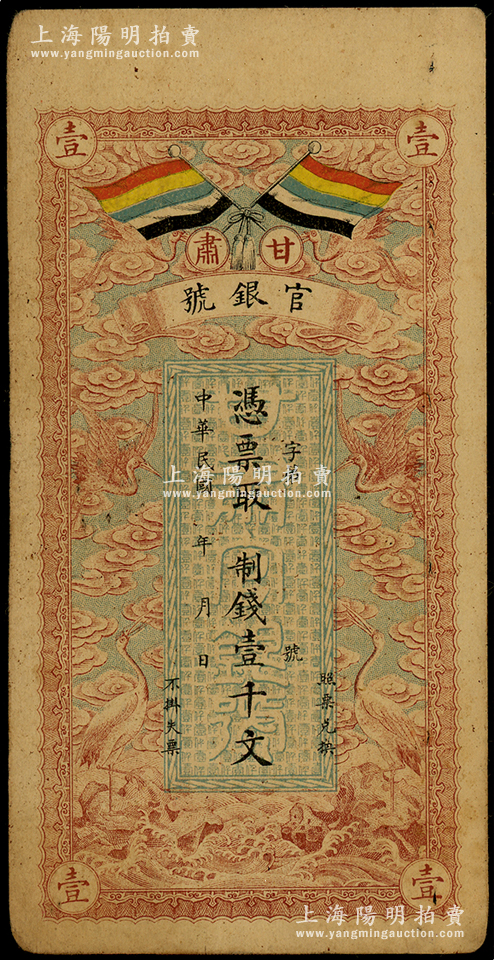 上海陽明拍賣
www.yangmingauction.com
壹 壹
甘肅
官銀號
字第 號
憑票取制錢壹千文
中華民國 年 月 日
照票兌換
不掛失票
上海陽明拍賣
www.yangmingauction.com
壹 壹
上海陽明拍賣
www.yangmingauction.com